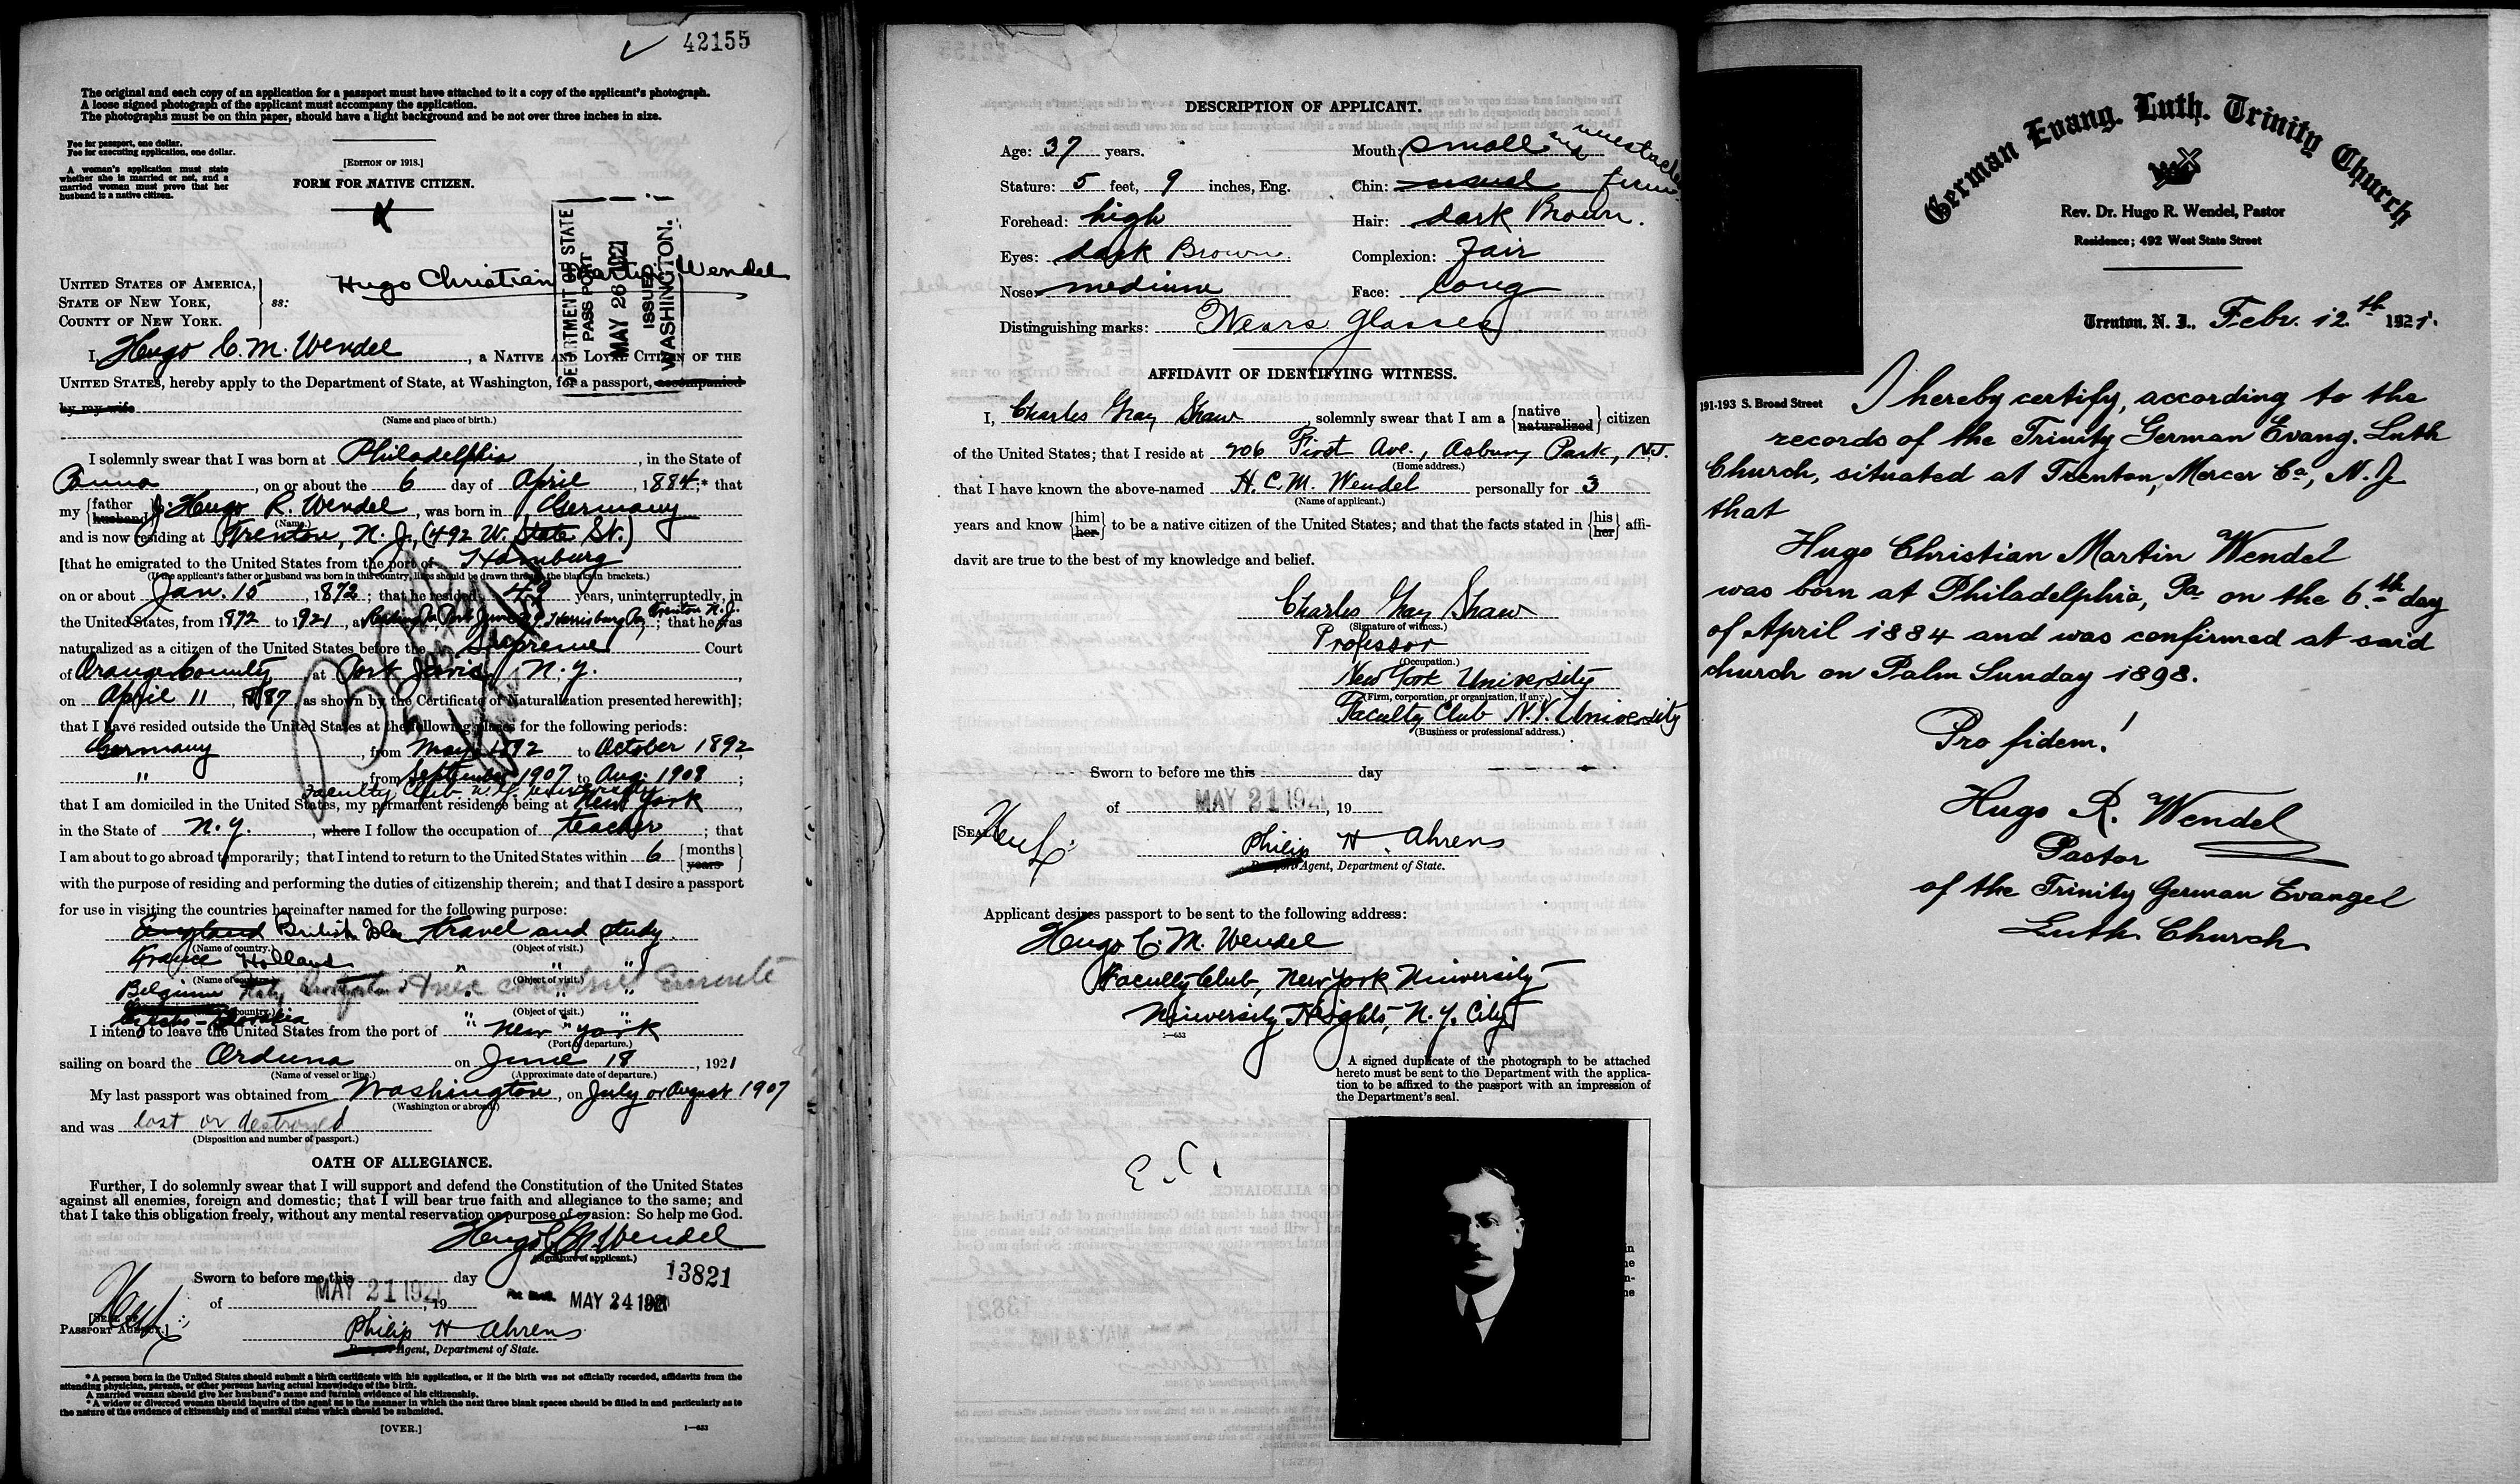 42155
The original and each copy of an application for a passport must have attached to it a copy of the applicant's photograph.
A loose signed photograph of the applicant must accompany the application.
The photographs must be on thin paper, should have a light background and be not over three inches in size.
Fee for passport, one dollar.
Fee for executing application, one dollar.
A woman's application must state
whether she is married or not, and a
married woman must prove that her
husband is a native citizen.
[EDITION OF 1918.]
FORM FOR NATIVE CITIZEN.
DEPARTMENT OF STATE
PASSPORT
MAY 26 1921
ISSUED
WASHINGTON.
Hugo Christian Martin Wendel
UNITED STATES OF AMERICA,
STATE OF NEW YORK,
COUNTY OF NEW YORK.
ss:
I, Hugo C. M. Wendel, a NATIVE AND LOYAL CITIZEN OF THE
UNITED STATES, hereby apply to the Department of State, at Washington, for a passport, accompanied
by my wife
(Name and place of birth.)
I solemnly swear that I was born at Philadelphia, in the State of
Penna, on or about the 6 day of April, 1884;* that
my {father husband} J. Hugo R. Wendel, was born in Germany
(Name.)
and is now residing at Trenton, N. J., (492 W. State St.)
[that he emigrated to the United States from the port of Hamburg
(If the applicant's father or husband was born in this country, lines should be drawn through the blanks in brackets.)
on or about Jan. 15, 1872; that he resided 49 years, uninterruptedly, in
the United States, from 1872 to 1921, at Port Jervis N.Y. Harrisburg Pa, Trenton N.J.; that he was
naturalized as a citizen of the United States before the Supreme Court
of Orange County at Port Jervis, N.Y.
on April 11, 1887, as shown by the Certificate of Naturalization presented herewith];
that I have resided outside the United States at the following places for the following periods:
Germany, from May 1892 to October 1892,
" , from September 1907 to Aug. 1908;
Faculty Club N.Y. University
that I am domiciled in the United States, my permanent residence being at New York,
in the State of N.Y., where I follow the occupation of teacher; that
I am about to go abroad temporarily; that I intend to return to the United States within 6 {months years}
with the purpose of residing and performing the duties of citizenship therein; and that I desire a passport
for use in visiting the countries hereinafter named for the following purpose:
England British Isles travel and study
(Name of country.) (Object of visit.)
France Holland " " "
(Name of country.) (Object of visit.)
Belgium Italy " " "
(Name of country.) (Object of visit.)
Czecho-Slovakia " " "
I intend to leave the United States from the port of New York
(Port of departure.)
sailing on board the Orduna on June 18, 1921
(Name of vessel or line.) (Approximate date of departure.)
My last passport was obtained from Washington, on July or August 1907
(Washington or abroad.)
and was lost or destroyed
(Disposition and number of passport.)
OATH OF ALLEGIANCE.
Further, I do solemnly swear that I will support and defend the Constitution of the United States
against all enemies, foreign and domestic; that I will bear true faith and allegiance to the same; and
that I take this obligation freely, without any mental reservation or purpose of evasion: So help me God.
Hugo C M Wendel
(Signature of applicant.)
13821
Sworn to before me this day
of MAY 21 1921, 19
MAY 24 1921
[SEAL OF
PASSPORT AGENCY.]
Philip H Ahrens
Passport Agent, Department of State.
* A person born in the United States should submit a birth certificate with his application, or if the birth was not officially recorded, affidavits from the
attending physician, parents, or other persons having actual knowledge of the birth.
A married woman should give her husband's name and furnish evidence of his citizenship.
* A widow or divorced woman should inquire of the agent as to the manner in which the next three blank spaces should be filled in and particularly as to
the nature of the evidence of citizenship and of marital status which should be submitted.
[OVER.]
1—653
DESCRIPTION OF APPLICANT.
Age: 37 years.
Mouth: small and mustache
Stature: 5 feet, 9 inches, Eng.
Chin: usual firm
Forehead: high
Hair: dark Brown.
Eyes: dark Brown
Complexion: Fair
Nose: medium
Face: long
Distinguishing marks: Wears glasses
AFFIDAVIT OF IDENTIFYING WITNESS.
I, Charles Gray Shaw, solemnly swear that I am a {native naturalized} citizen
of the United States; that I reside at 906 First Ave., Asbury Park, N.J.
(Home address.)
that I have known the above-named H. C. M. Wendel personally for 3
(Name of applicant.)
years and know {him her} to be a native citizen of the United States; and that the facts stated in {his her} affi-
davit are true to the best of my knowledge and belief.
Charles Gray Shaw
(Signature of witness.)
Professor
(Occupation.)
New York University
(Firm, corporation, or organization, if any.)
Faculty Club N.Y. University
(Business or professional address.)
Sworn to before me this day
of MAY 21 1921, 19
[SEAL]
Philip H. Ahrens
Passport Agent, Department of State.
Applicant desires passport to be sent to the following address:
Hugo C. M. Wendel
Faculty Club, New York University
University Heights, N.Y. City
1—653
A signed duplicate of the photograph to be attached
hereto must be sent to the Department with the applica-
tion to be affixed to the passport with an impression of
the Department's seal.
German Evang. Luth. Trinity Church
Rev. Dr. Hugo R. Wendel, Pastor
Residence; 492 West State Street
Trenton, N. J., Febr. 12.th 1921.
191-193 S. Broad Street
I hereby certify, according to the
records of the Trinity German Evang. Luth
Church, situated at Trenton, Mercer Co, N. J.
that
Hugo Christian Martin Wendel
was born at Philadelphia, Pa on the 6.th day
of April 1884 and was confirmed at said
church on Palm Sunday 1898.
Pro fidem!
Hugo R. Wendel
Pastor
of the Trinity German Evangel
Luth. Church